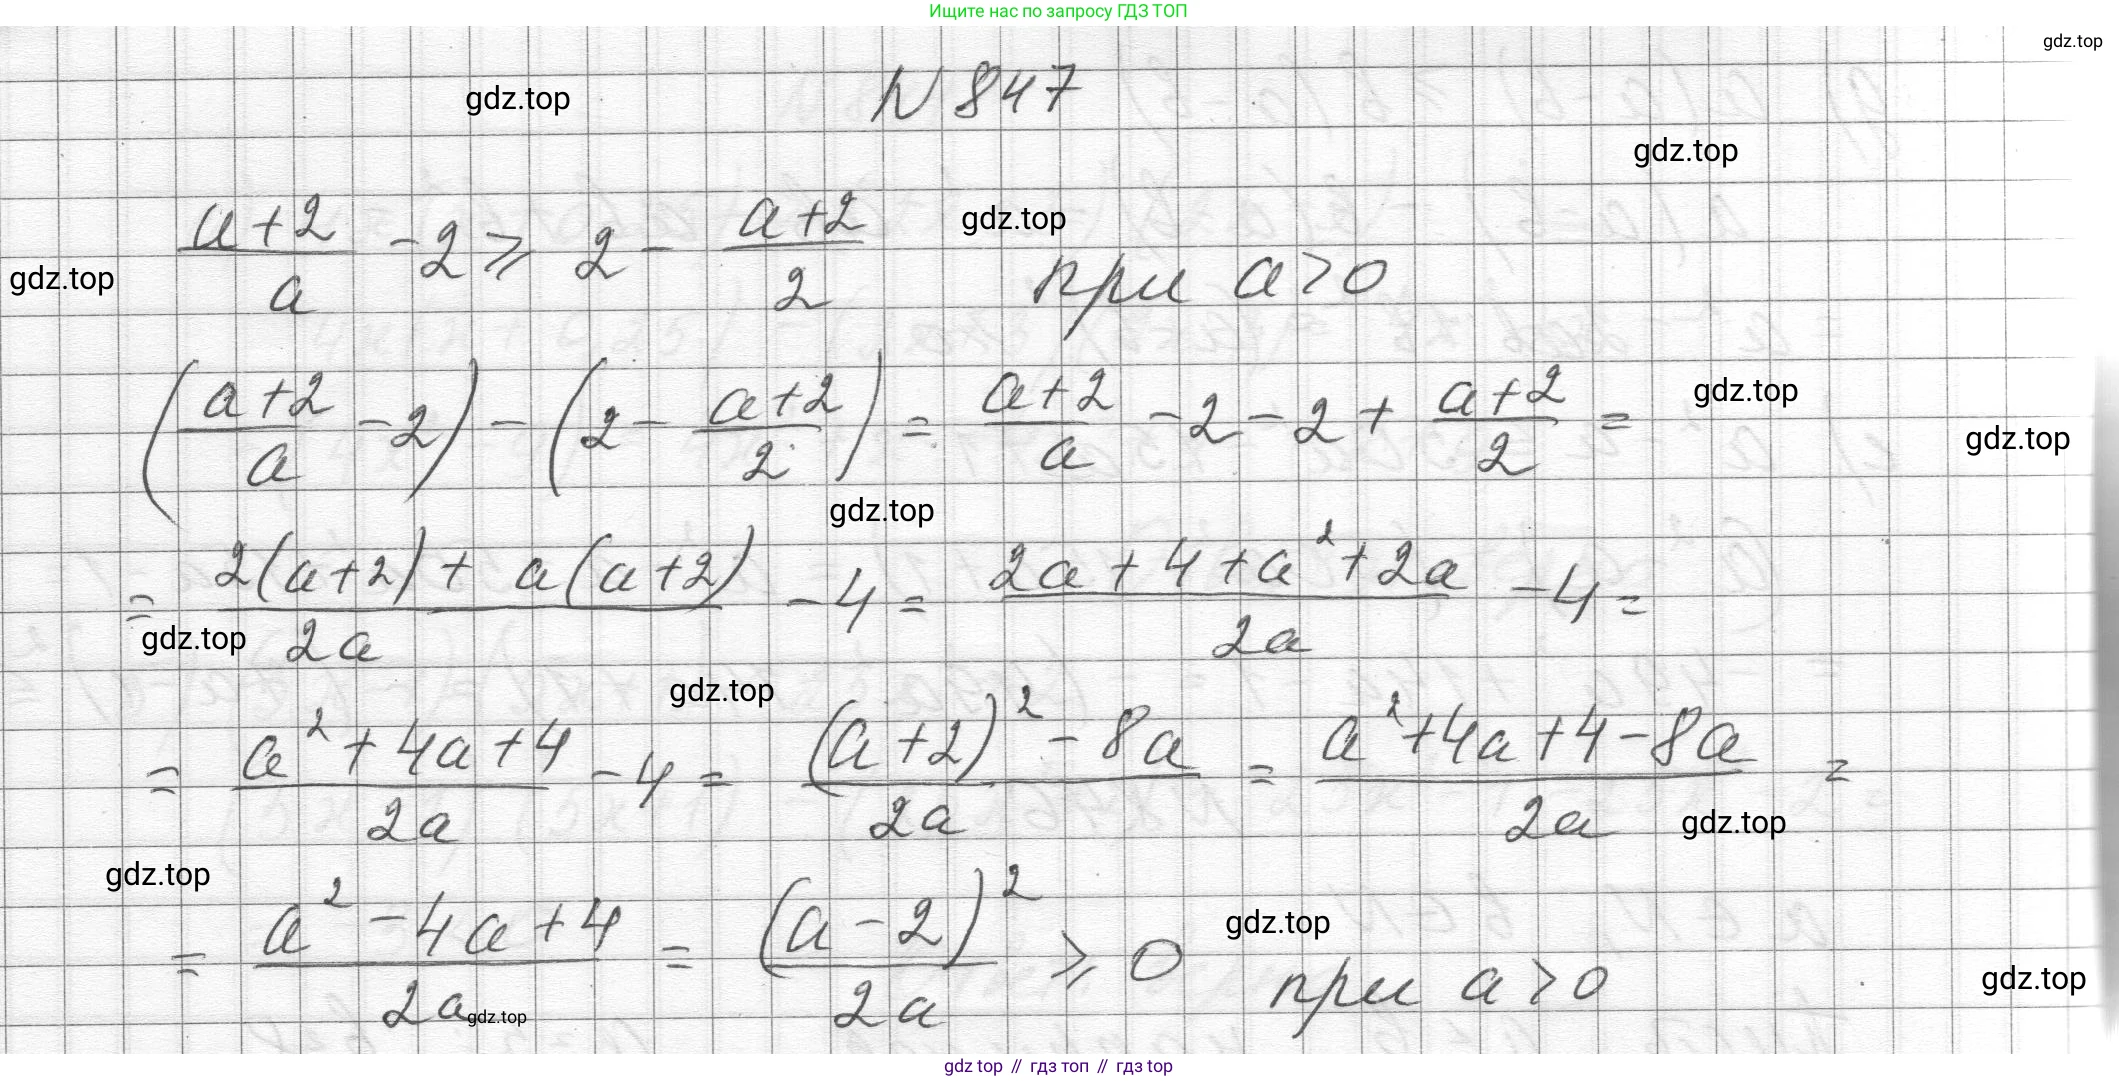 Ищите нас по запросу ГДЗ ТОП
gdz.top
gdz.top
N 847
gdz.top
(a+2)/a - 2 ⩾ 2 - (a+2)/2 при a > 0
gdz.top
gdz.top
((a+2)/a - 2) - (2 - (a+2)/2) = (a+2)/a - 2 - 2 + (a+2)/2 =
gdz.top
gdz.top
gdz.top
= (2(a+2) + a(a+2))/2a - 4 = (2a + 4 + a² + 2a)/2a - 4 =
gdz.top
gdz.top
= (a² + 4a + 4)/2a - 4 = ((a+2)² - 8a)/2a = (a² + 4a + 4 - 8a)/2a =
gdz.top
gdz.top
= (a² - 4a + 4)/2a = (a - 2)²/2a ⩾ 0 при a > 0
gdz.top
gdz.top
gdz.top
gdz top // гдз топ // гдз top